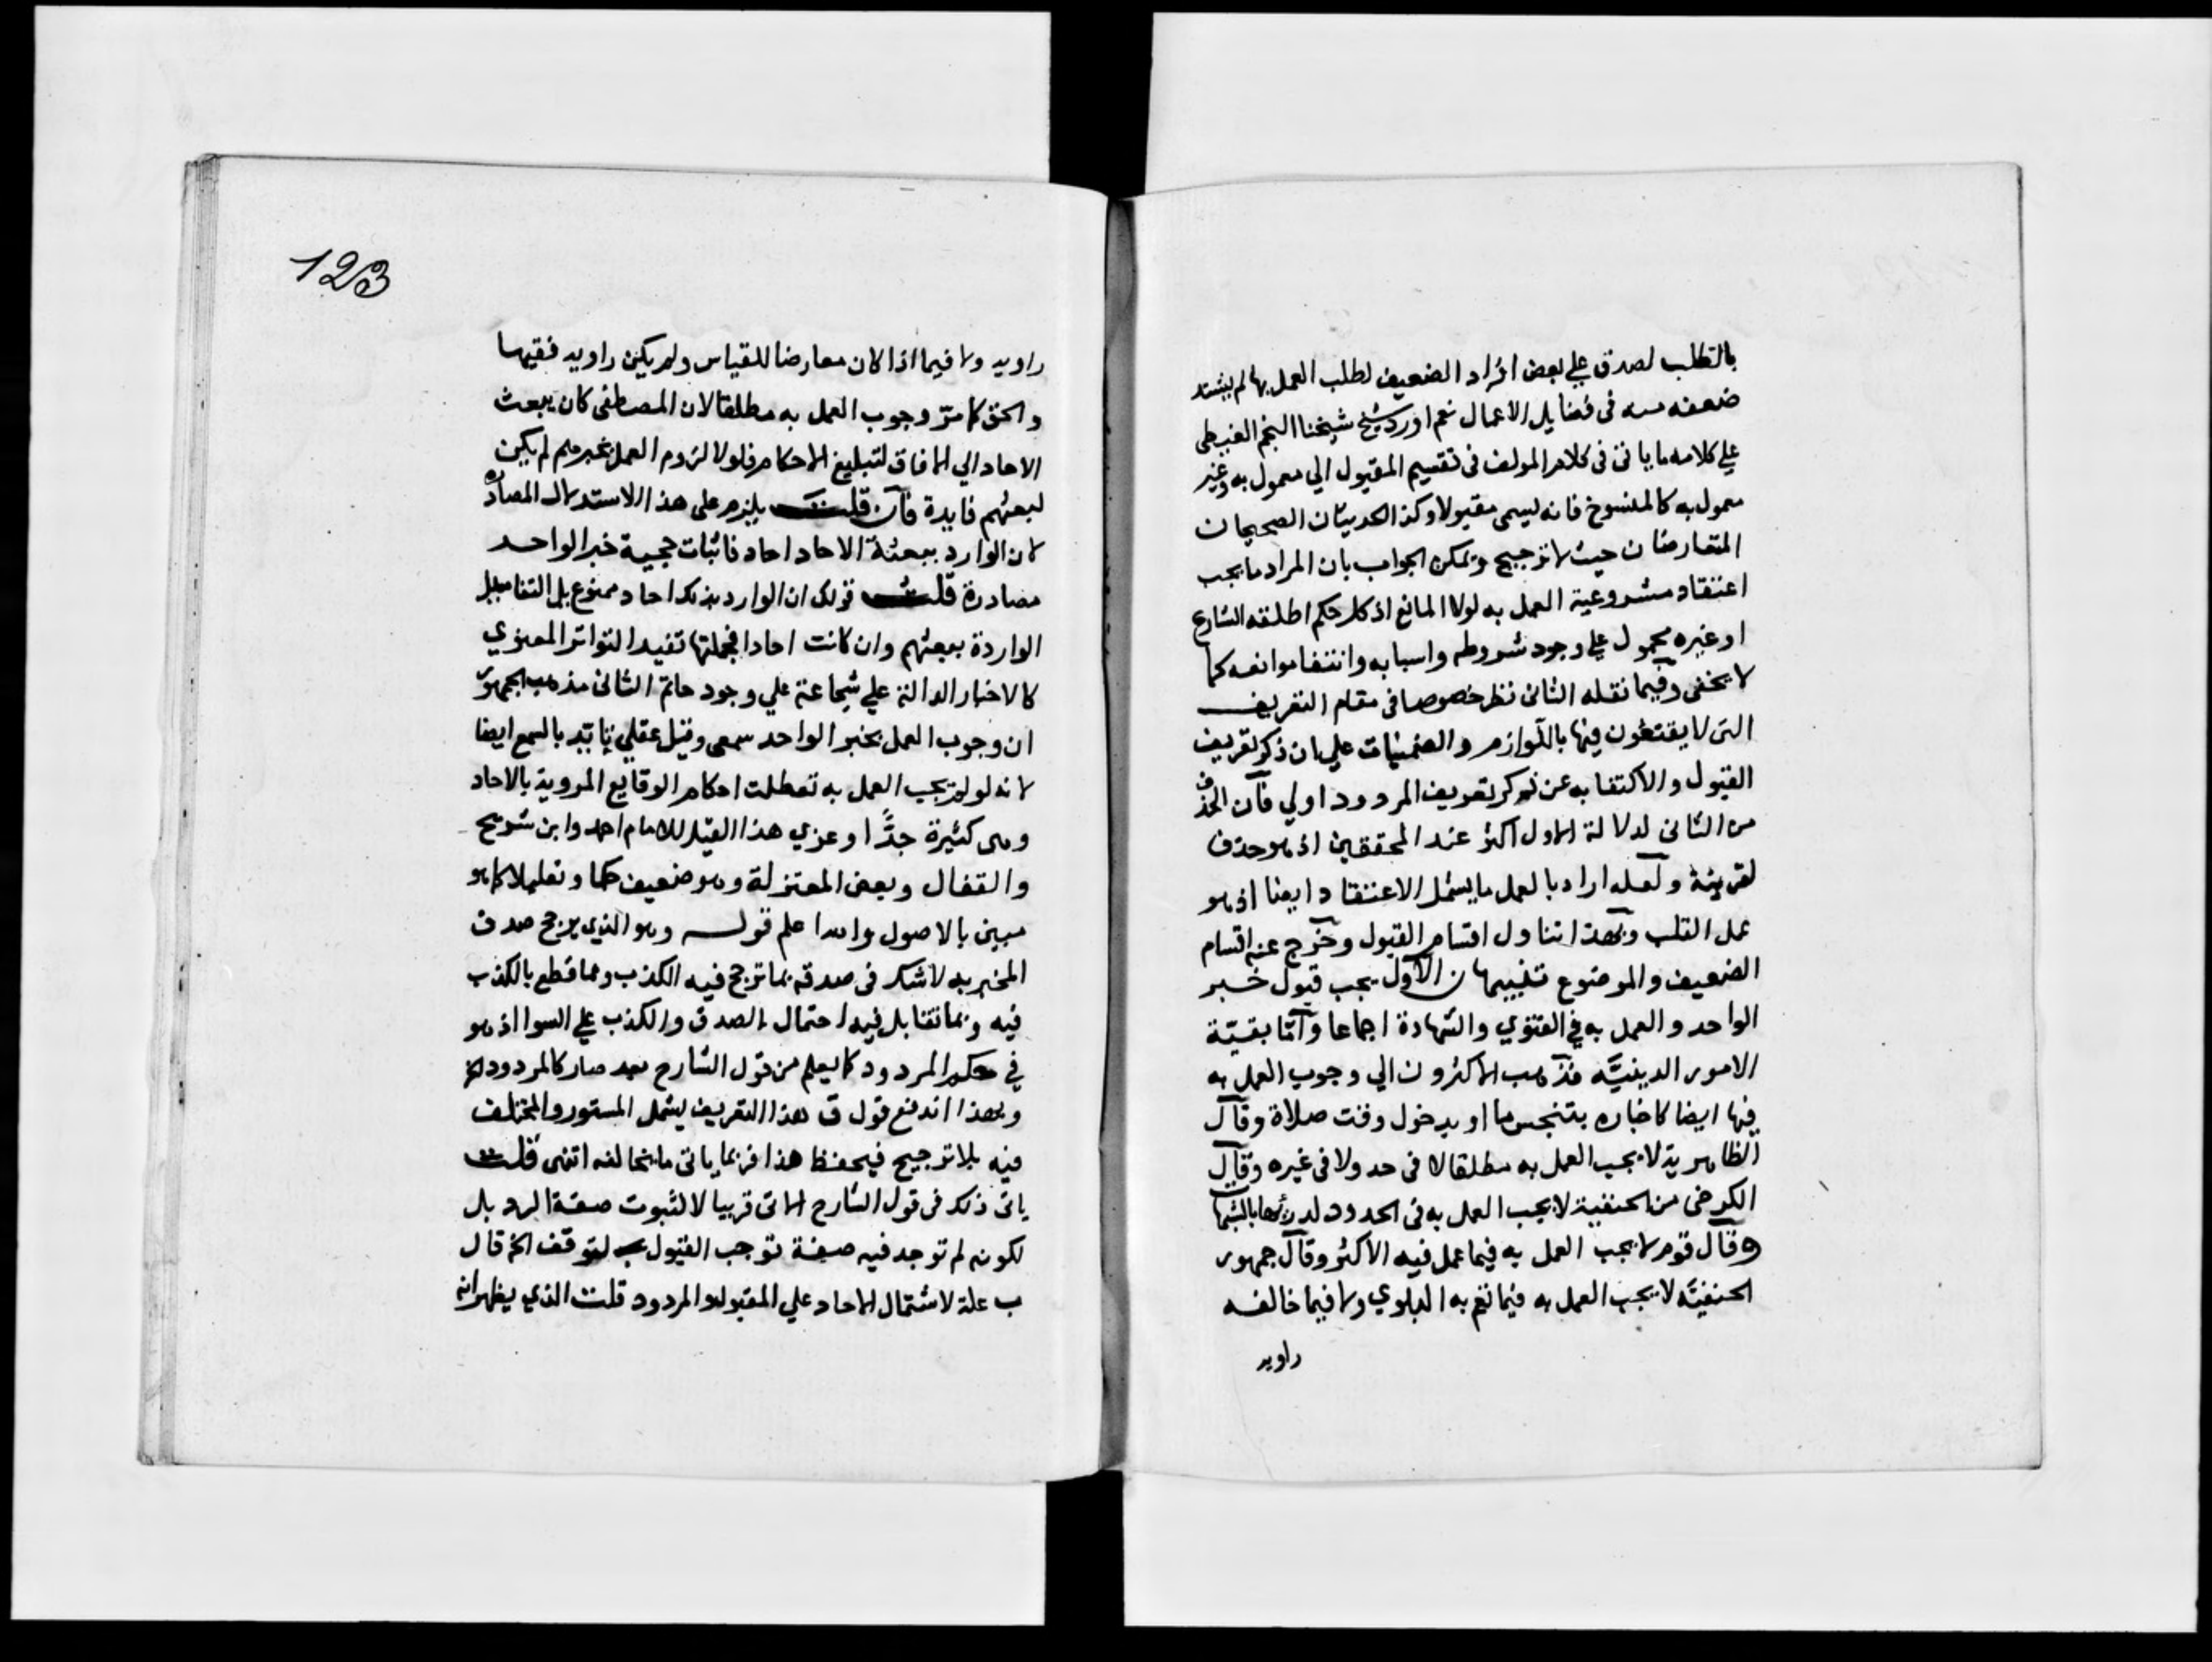 بالتطلب لصدق علي بعض افراد الضعيف لطلب العمل بما لم يشتد
ضعفه منه في فضايل الاعمال نعم اورد شيخ شيخنا النجم الغيطي
علي كلامه ما ياتي في كلام المولف في تقسيم المقبول الي معمول به وغير
معمول به كالمنسوخ فانه يسمى مقبولا وكذا الحديثان الصحيحان
المتعارضان حيث لا ترجيح ويمكن الجواب بان المراد ما يجب
اعتقاد مشروعية العمل به لولا المانع اذ كل حكم اطلقه الشارع
او غيره محمول علي وجود شروطه واسبابه وانتفا موانعه كما
لا يخفى وفيما نقله الثاني نظر خصوصا في مقام التعريف
التي لا يقتنعون فيها باللوازم والضمنيات علي ان ذكر تعريف
القبول والاكتفا به عن ذكر تعريف المردود اولي فان الحذف
من الثاني لدلالة الاول اكثر عند المحققين اذ هو حذف
لقرينة ولعله اراد بالعمل ما يشمل الاعتقاد ايضا اذ هو
عمل القلب وبهذا تناول اقسام القبول وخرج عنه اقسام
الضعيف والموضوع تنبيهان الاول يجب قبول خبر
الواحد والعمل به في الفتوي والشهادة اجماعا واما بقية
الامور الدينية فذهب الاكثرون الي وجوب العمل به
فيها ايضا كاخباره بتنجس ما او بدخول وقت صلاة وقال
الظاهرية لا يجب العمل به مطلقا لا في حد ولا في غيره وقال
الكرخي من الحنفية لا يجب العمل به في الحدود لدرئها بالشبهات
وقال قوم لا يجب العمل به فيما عمل فيه الاكثر وقال جمهور
الحنفية لا يجب العمل به فيما تعم به البلوي ولا فيما خالفه
راويه
123
راويه ولا فيما اذا كان معارضا للقياس ولم يكن راويه فقيها
والحق كما مر وجوب العمل به مطلقا لان المصطفى كان يبعث
الاحاد الي الافاق لتبليغ الاحكام فلولا لزوم العمل بخبرهم لم يكن
لبعثهم فايدة فان قلت يلزم على هذا الاستدلال المصادرة
لان الوارد ببعثة الاحاد احاد فاثبات حجية خبر الواحد
مصادرة قلت قولك ان الوارد بذلك احاد ممنوع بل التفاصيل
الواردة ببعثهم وان كانت احادا فجملتها تفيد التواتر المعنوي
كالاخبار الدالة علي شجاعة علي وجود حاتم الثاني مذهب الجمهور
ان وجوب العمل بخبر الواحد سمعي وقيل عقلي بالسمع ايضا
لانه لو لم يجب العمل به تعطلت احكام الوقايع المروية بالاحاد
وهى كثيرة جدًّا وعزي هذا القيل للامام احمد وابن سريج
والقفال وبعض المعتزلة وهو ضعيف حكما وتعليلا كما هو
مبين بالاصول والله اعلم قوله وهو الذي يرجح صدق
المخبر به لا شك في صدقه مما ترجح فيه الكذب ومما قطع بالكذب
فيه ومما تقابل فيه احتمال الصدق والكذب علي السوا اذ هو
في حكم المردود كما يعلم من قول الشارح بعد صار كالمردود الخ
وبهذا اندفع قول ق هذا التعريف يشمل المستور والمختلف
فيه بلا ترجيح فيحفظ هذا فربما ياتي ما يخالفه انتهى قلت
ياتي ذلك في قول الشارح الاتي قريبا لا لثبوت صفة الرد بل
لكونه لم توجد فيه صفة توجب القبول لتوقف الخ قال
ب علة لاشتمال الاحاد علي المقبول والمردود قلت الذي يظهر انه